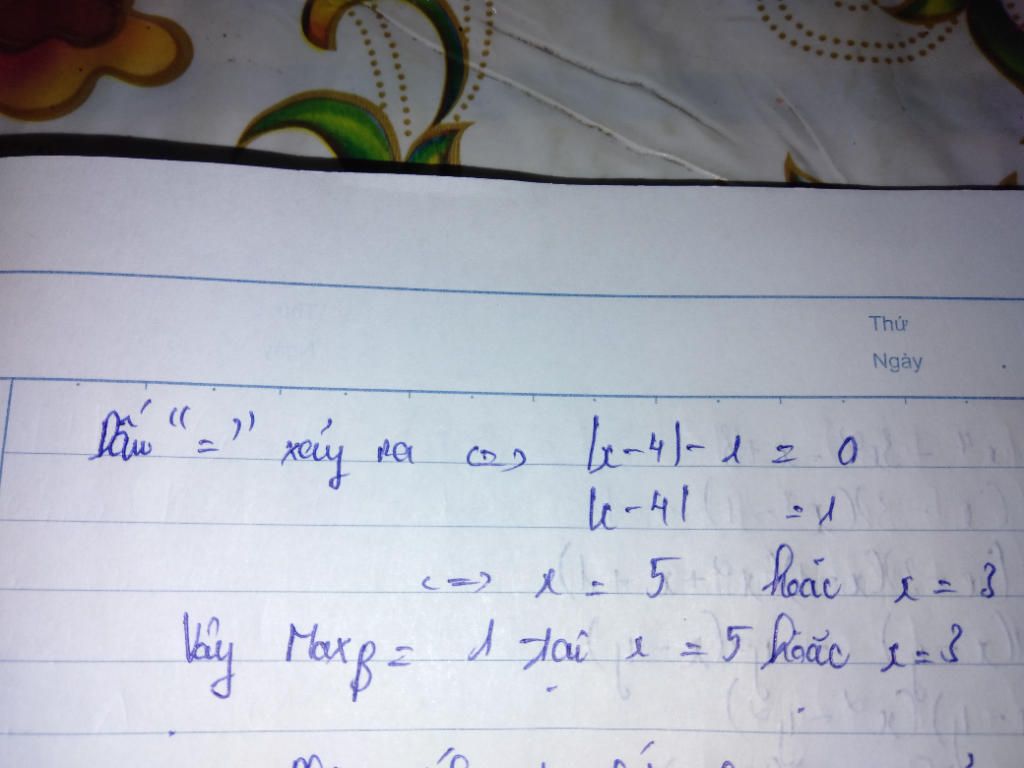 Thứ
Ngày
Dấu "=" xảy ra <=> |x-4|-1 = 0
|x-4| = 1
<=> x = 5 hoặc x = 3
Vậy Max B = 1 tại x = 5 hoặc x = 3